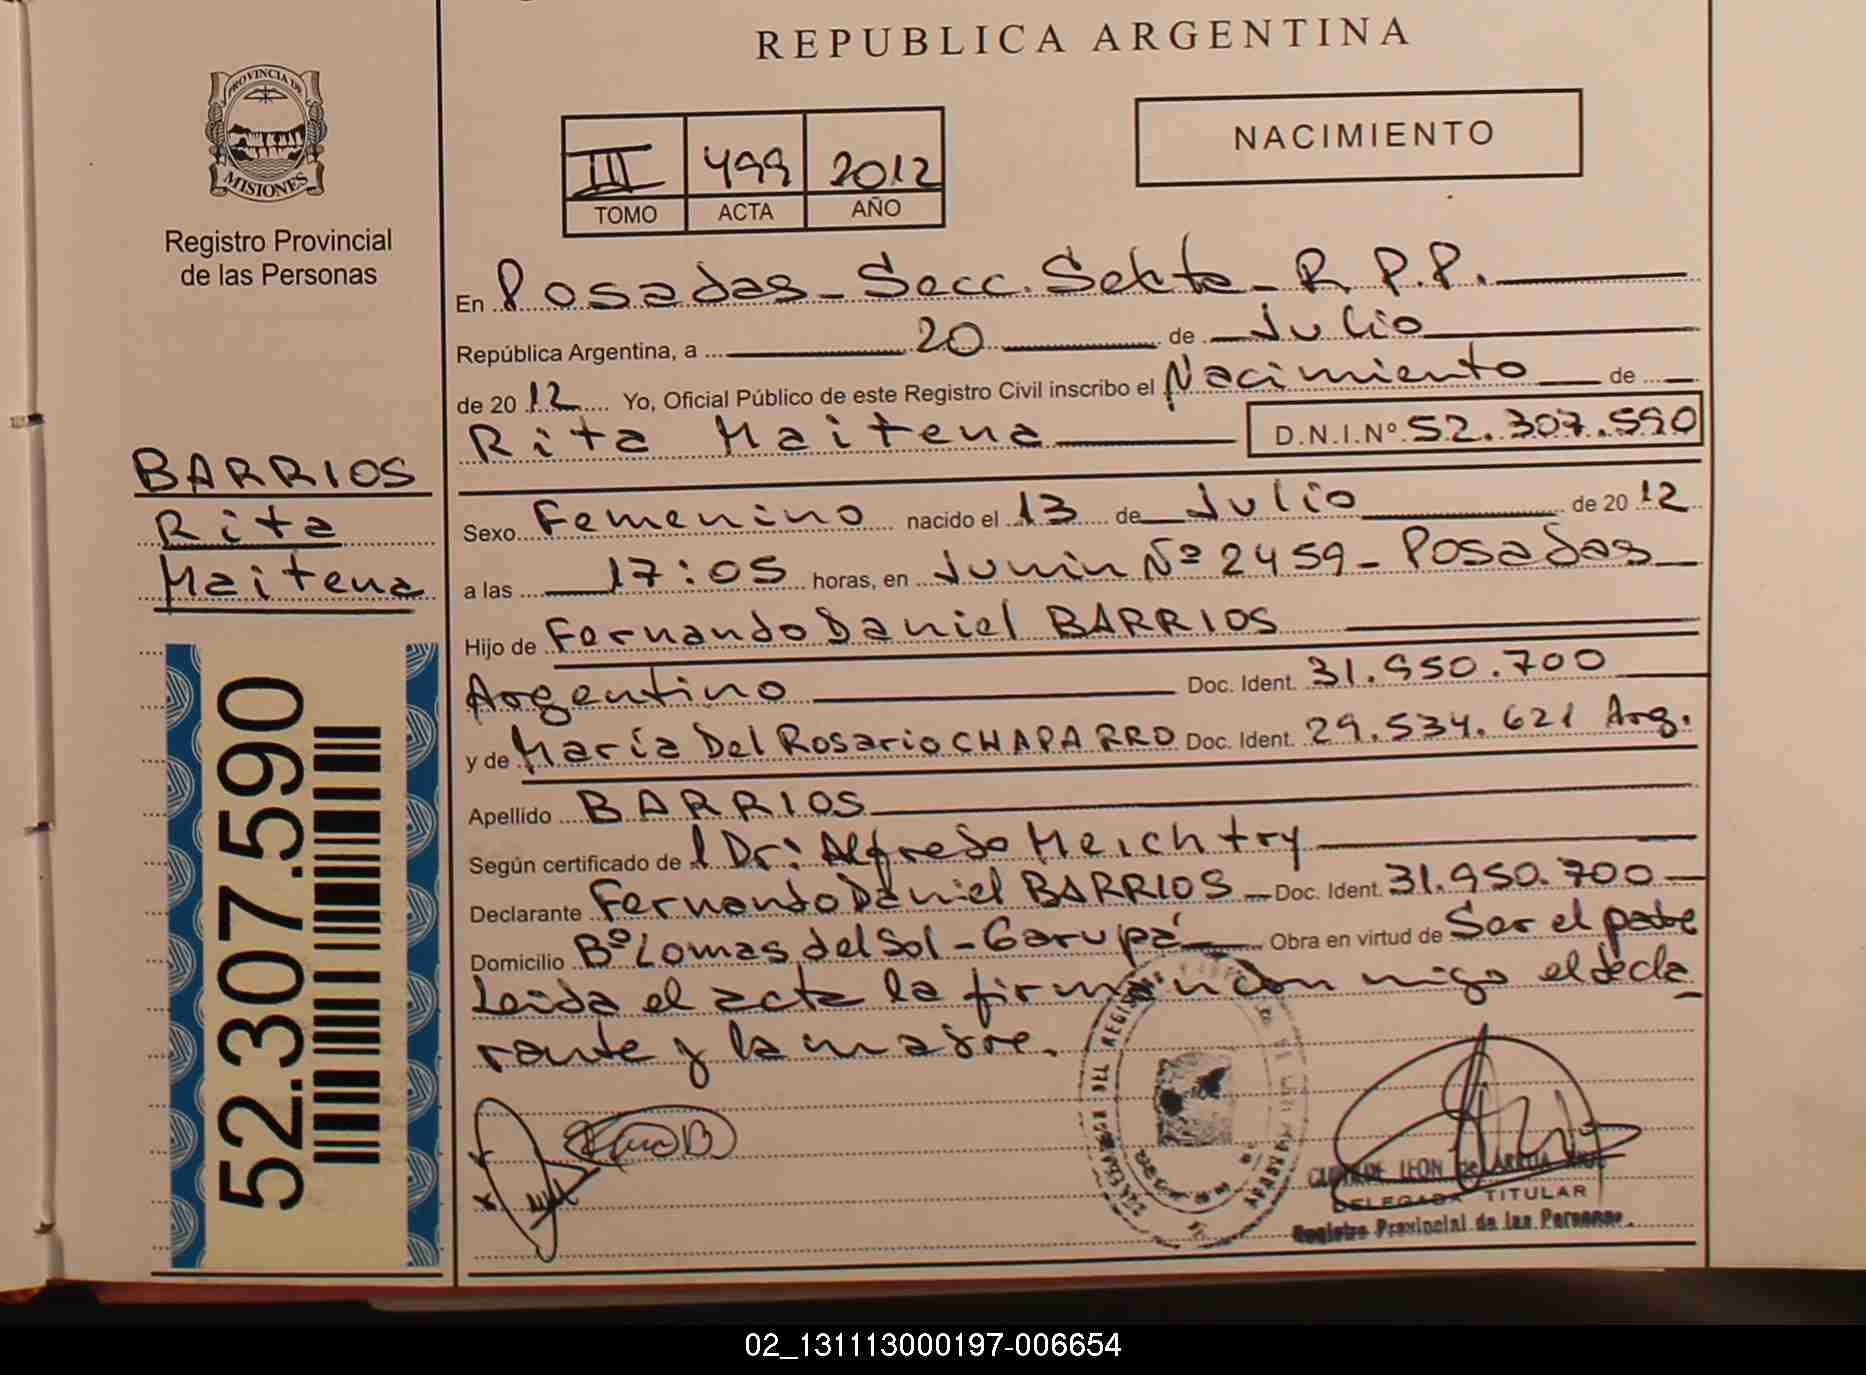 REPUBLICA ARGENTINA
PROVINCIA DE
MISIONES
Registro Provincial
de las Personas
III 499 2012
TOMO ACTA AÑO
NACIMIENTO
En Posadas - Secc. Sexta - R.P.P.
República Argentina, a 20 de Julio
de 2012 Yo, Oficial Público de este Registro Civil inscribo el Nacimiento de
Rita Maitena D.N.I.Nº 52.307.590
BARRIOS
Rita
Maitena
52.307.590
Sexo Femenino nacido el 13 de Julio de 2012
a las 17:05 horas, en Junin Nº 2459 - Posadas
Hijo de Fernando Daniel BARRIOS
Argentino Doc. Ident. 31.950.700
y de María Del Rosario CHAPARRO Doc. Ident. 29.534.621 Arg.
Apellido BARRIOS
Según certificado de l Dr: Alfredo Meichtry
Declarante Fernando Daniel BARRIOS - Doc. Ident. 31.950.700
Domicilio Bº Lomas del Sol - Garupá Obra en virtud de Ser el padre
Leida el acta la firman con migo el decla
rante y la madre.
LEON de
DELEGADA TITULAR
Registro Provincial de las Personas
02_131113000197-006654